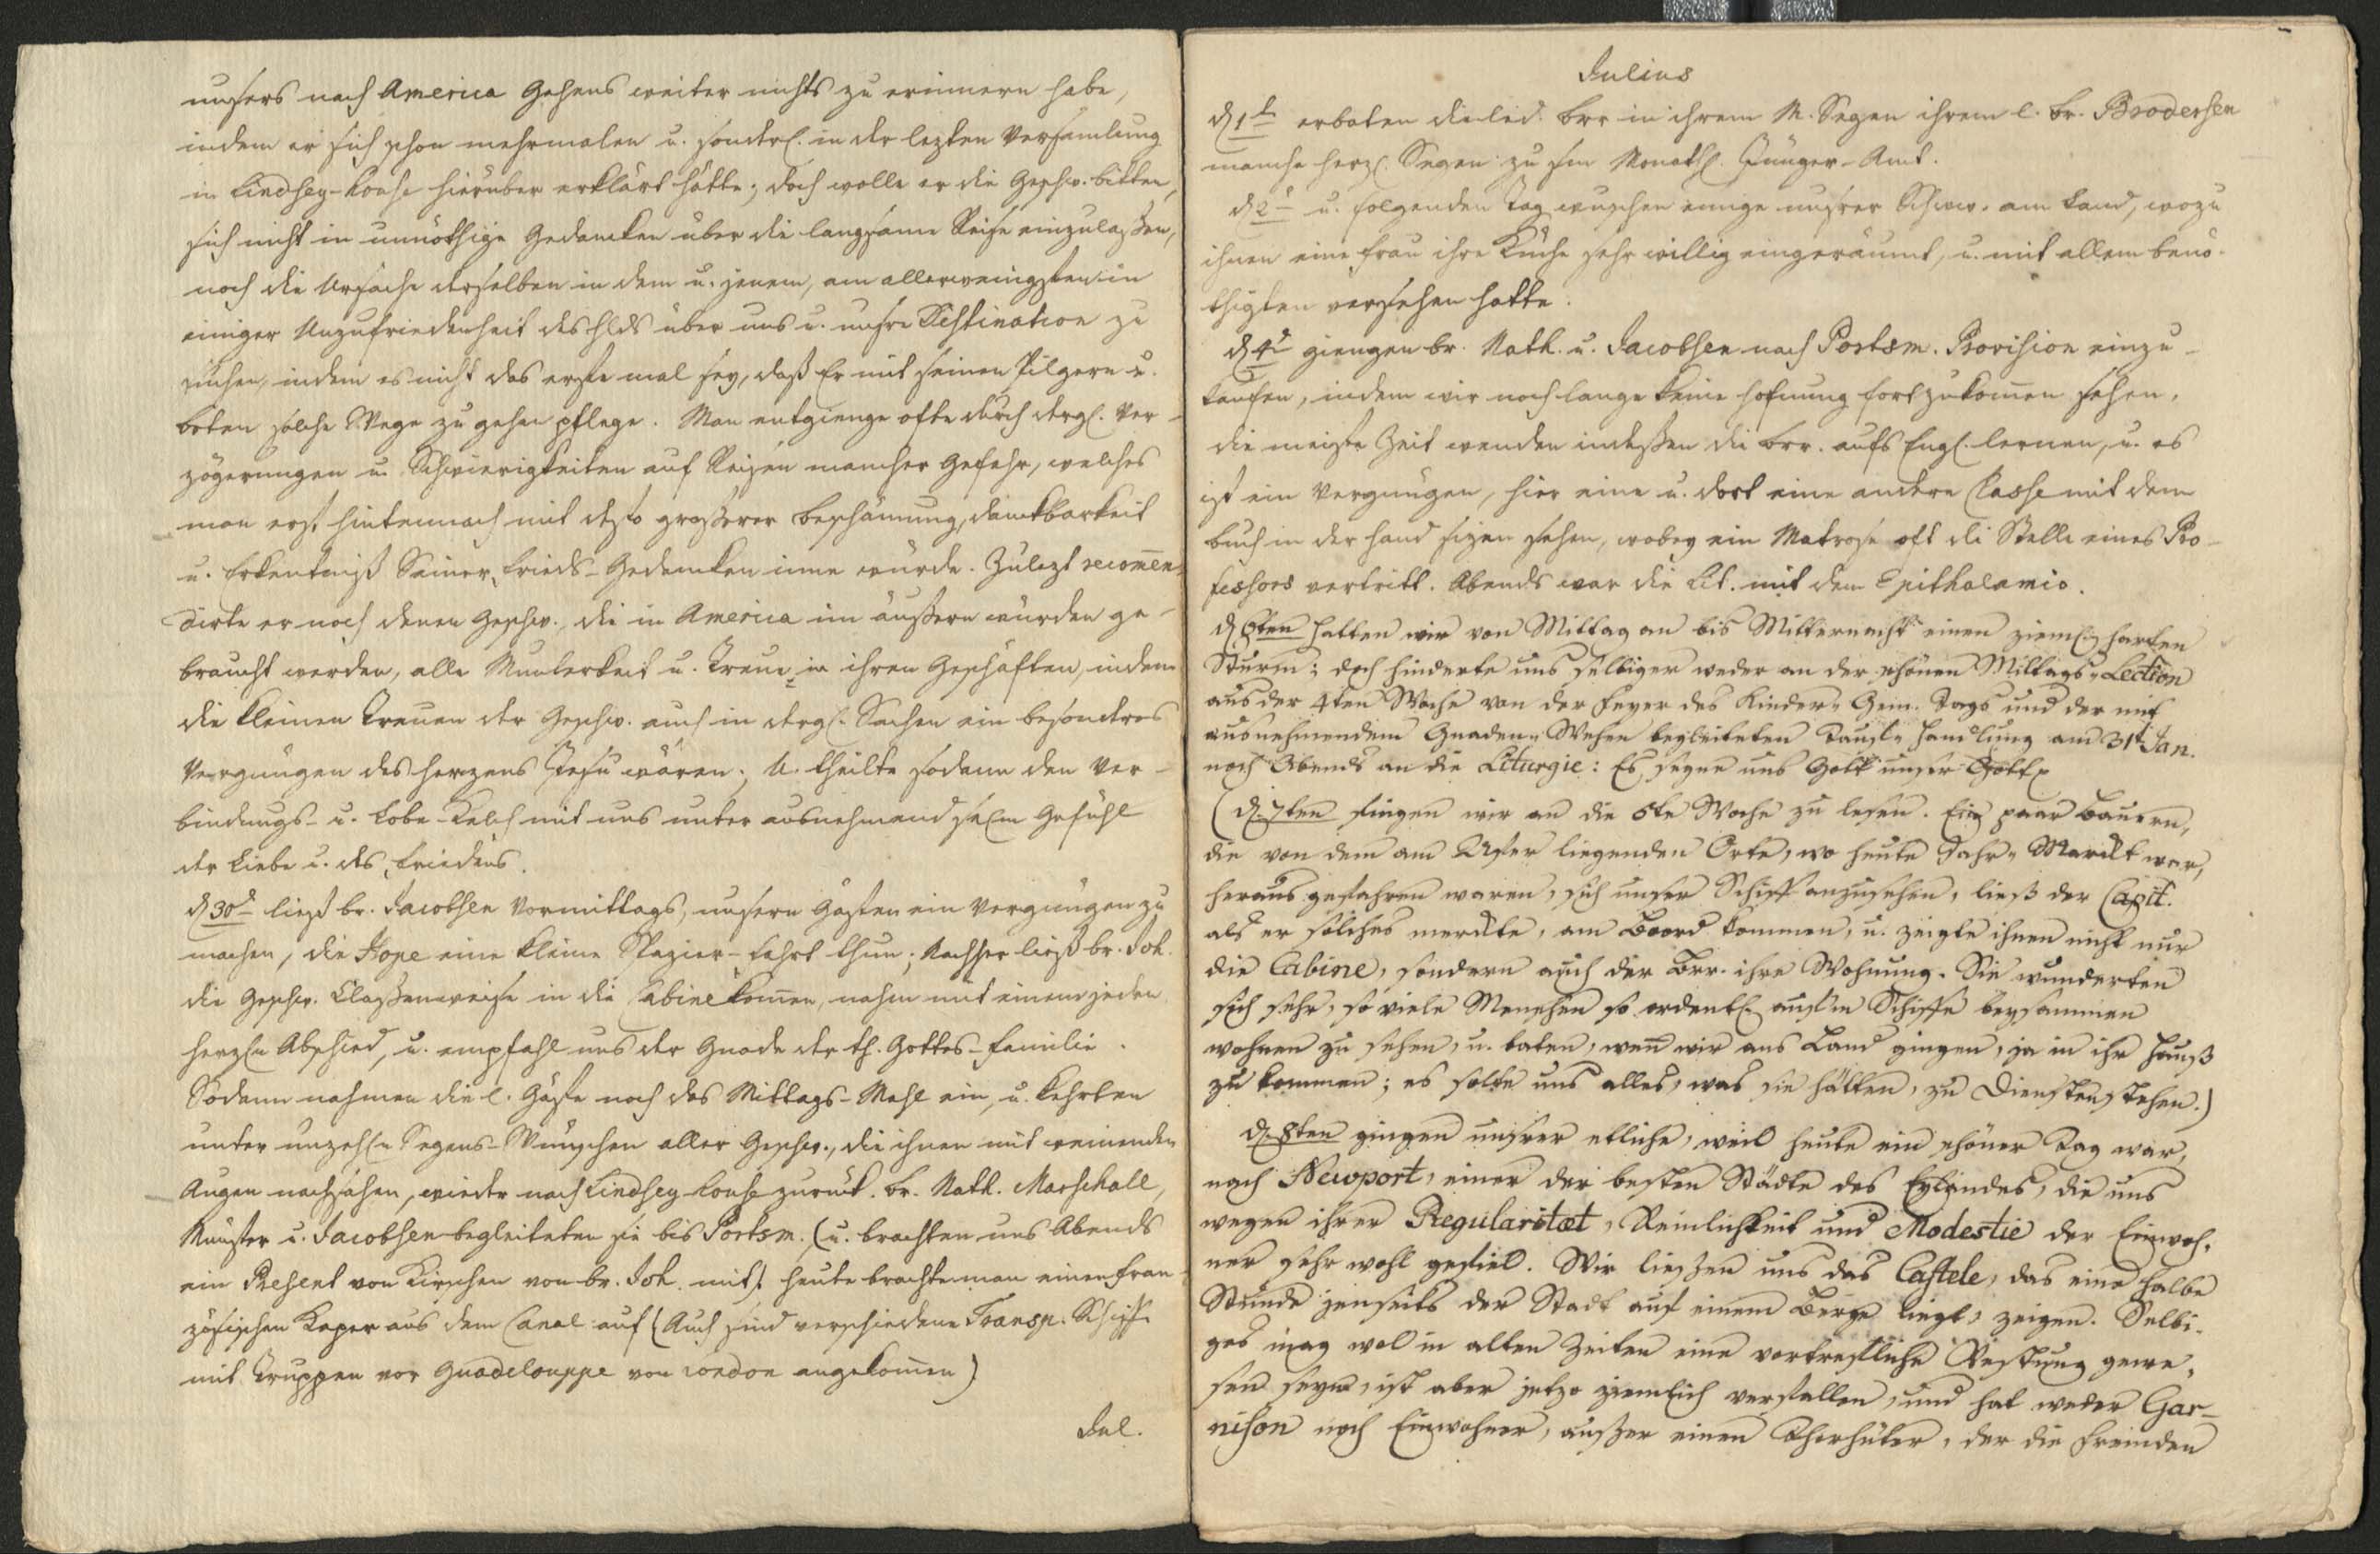 unsers nach America Gehens weiter nichts zu erinnern habe,
indem er sich schon mehrmalen u. sonderl. in der lezten Versamlung
in Lindsey-house hierüber erklärt hätte; doch wolle er die Geschw. bitten,
sich nicht in unnöthige Gedancken über die langsame Reise einzulaßen,
noch die Ursache derselben in dem u. jenem, am allerwenigsten in
einiger Unzufriedenheit des Hlds über uns u. unsre Destination zu
suchen, indem es nicht das erste mal sey, daß Er mit seinen Pilgern u.
boten solche Wege zu gehen pflege. Man entgienge ofte durch dergl. Ver-
zögerungen u. Schwierigkeiten auf Reisen mancher Gefahr, welches
man erst hintennach mit desto größerer Beschämung, danckbarkeit
u. Erkentniß Seiner Frieds-Gedancken inne würde. Zulezt recomen-
dirte er noch denen Geschw., die in America im äußern würden ge-
braucht werden, alle Munterkeit u. Treue in ihren Geschäften, indem
die kleinen Treuen der Geschw. auch in dergl. Sachen ein besondres
Vergnügen des herzens Jesu wären; U. theilte sodann den Ver-
bindungs- u. Lobe-Kelch mit uns unter ausnehmend Gefühl
der Liebe u. des Friedens.
d 30t ließ br. Jacobsen Vormittags, unsern Gästen ein Vergnügen zu
machen, die Hope eine kleine Spazier-fahrt thun; Nachher ließ br. Joh.
die Geschw. Claßenweise in die Cabine komen, nahm mit einem jeden
herzln Abschied, u. empfahl uns der Gnade der th. Gottes-familie.
Sodann nahmen die l. Gäste noch das Mittags-Mahl ein, u. kehrten
unter unzehln Segens-Wünschen aller Geschw., die ihnen mit weinenden
Augen nachsahen, wieder nach Lindsey house zurück. br. Nath. Marschall,
Münster u. Jacobsen begleiteten sie bis Portsm. (u. brachten uns Abends
ein Present von Kirschen von br. Joh. mit). heute brachte man einen fran-
zösischen Kaper aus dem Canal auf (Auch sind verschiedene Transp. Schiffe
mit Truppen vor Guadelouppe von London angekomen)
Jul.
Julius
d 1t erbaten die led. brr in ihrem M. Segen ihrem l. br. Brodersen
manche herzl. Segen zu sm Monathl. Jünger-Amt.
d 2t u. folgenden Tag wuschen einige unsrer Schww. am Land, wozu
ihnen eine Frau ihre Küche sehr willig eingeräumt, u. mit allem benö-
thigten versehen hatte.
d 4t giengen br. Nath. u. Jacobsen nach Portsm. Provision einzu-
kaufen, indem wir noch lange keine hofnung fortzukomen sehen,
die meiste Zeit wenden indeßen die brr. aufs Engl. lernen, u. es
ist ein Vergnügen, hier eine u. dort eine andere Classe mit dem
buch in der hand sizen sehen, wobey ein Matrose oft die Stelle eines Pro-
fessors vertritt. Abends war die Lit. mit dem Epithalamio.
d 6ten hatten wir von Mittag an bis Mitternacht einen ziemlich harten
Sturm; doch hinderte uns selbiger weder an der schönen Mittags-Lection
aus der 4ten Woche von der Feyer des Kinder-Gem. Tags und der mit
ausnehmendem Gnaden-Wehen begleiteten Tauf-Handlung am 31t Jan.
noch Abends an die Liturgie: Es segne uns Gott unser Gott
(d. 7ten fingen wir an die 5te Woche zu lesen. Ein paar Bauern,
die von dem am Ufer liegenden Orte, wo heute Jahr-Marckt war,
heraus gefahren waren, sich unser Schiff anzusehen, ließ der Capit.
als er solches merckte, am Boord kommen, u. zeigte ihnen nicht nur
die Cabine, sondern auch der Brr. ihre Wohnung. Sie wunderten
sich sehr, so viele Menschen so ordentl. auf'm Schiffe beysammen
wohnen zu sehen, u. baten, wen wir ans Land gingen, ja in ihr Hauß
zu kommen; es solte uns alles, was sie hätten, zu Diensten stehen.)
d. 8ten gingen unsrer etliche, weil heute ein schöner Tag war,
nach Newport, einer der besten Städte des Eylandes, die uns
wegen ihrer Regularitæt, Reinlichkeit und Modestie der Einwoh-
ner sehr wohl gefiel. Wir lieszen uns das Castele, das eine halbe
Stunde jenseits der Stadt auf einem Berge liegt, zeigen. Selbi-
ges mag wol in alten Zeiten eine vortreffliche Vestung gewe-
sen seyn, ist aber jetzo ziemlich verfallen, und hat weder Gar-
nison noch Einwohner, auszer einen Thorhüter, der die Fremden